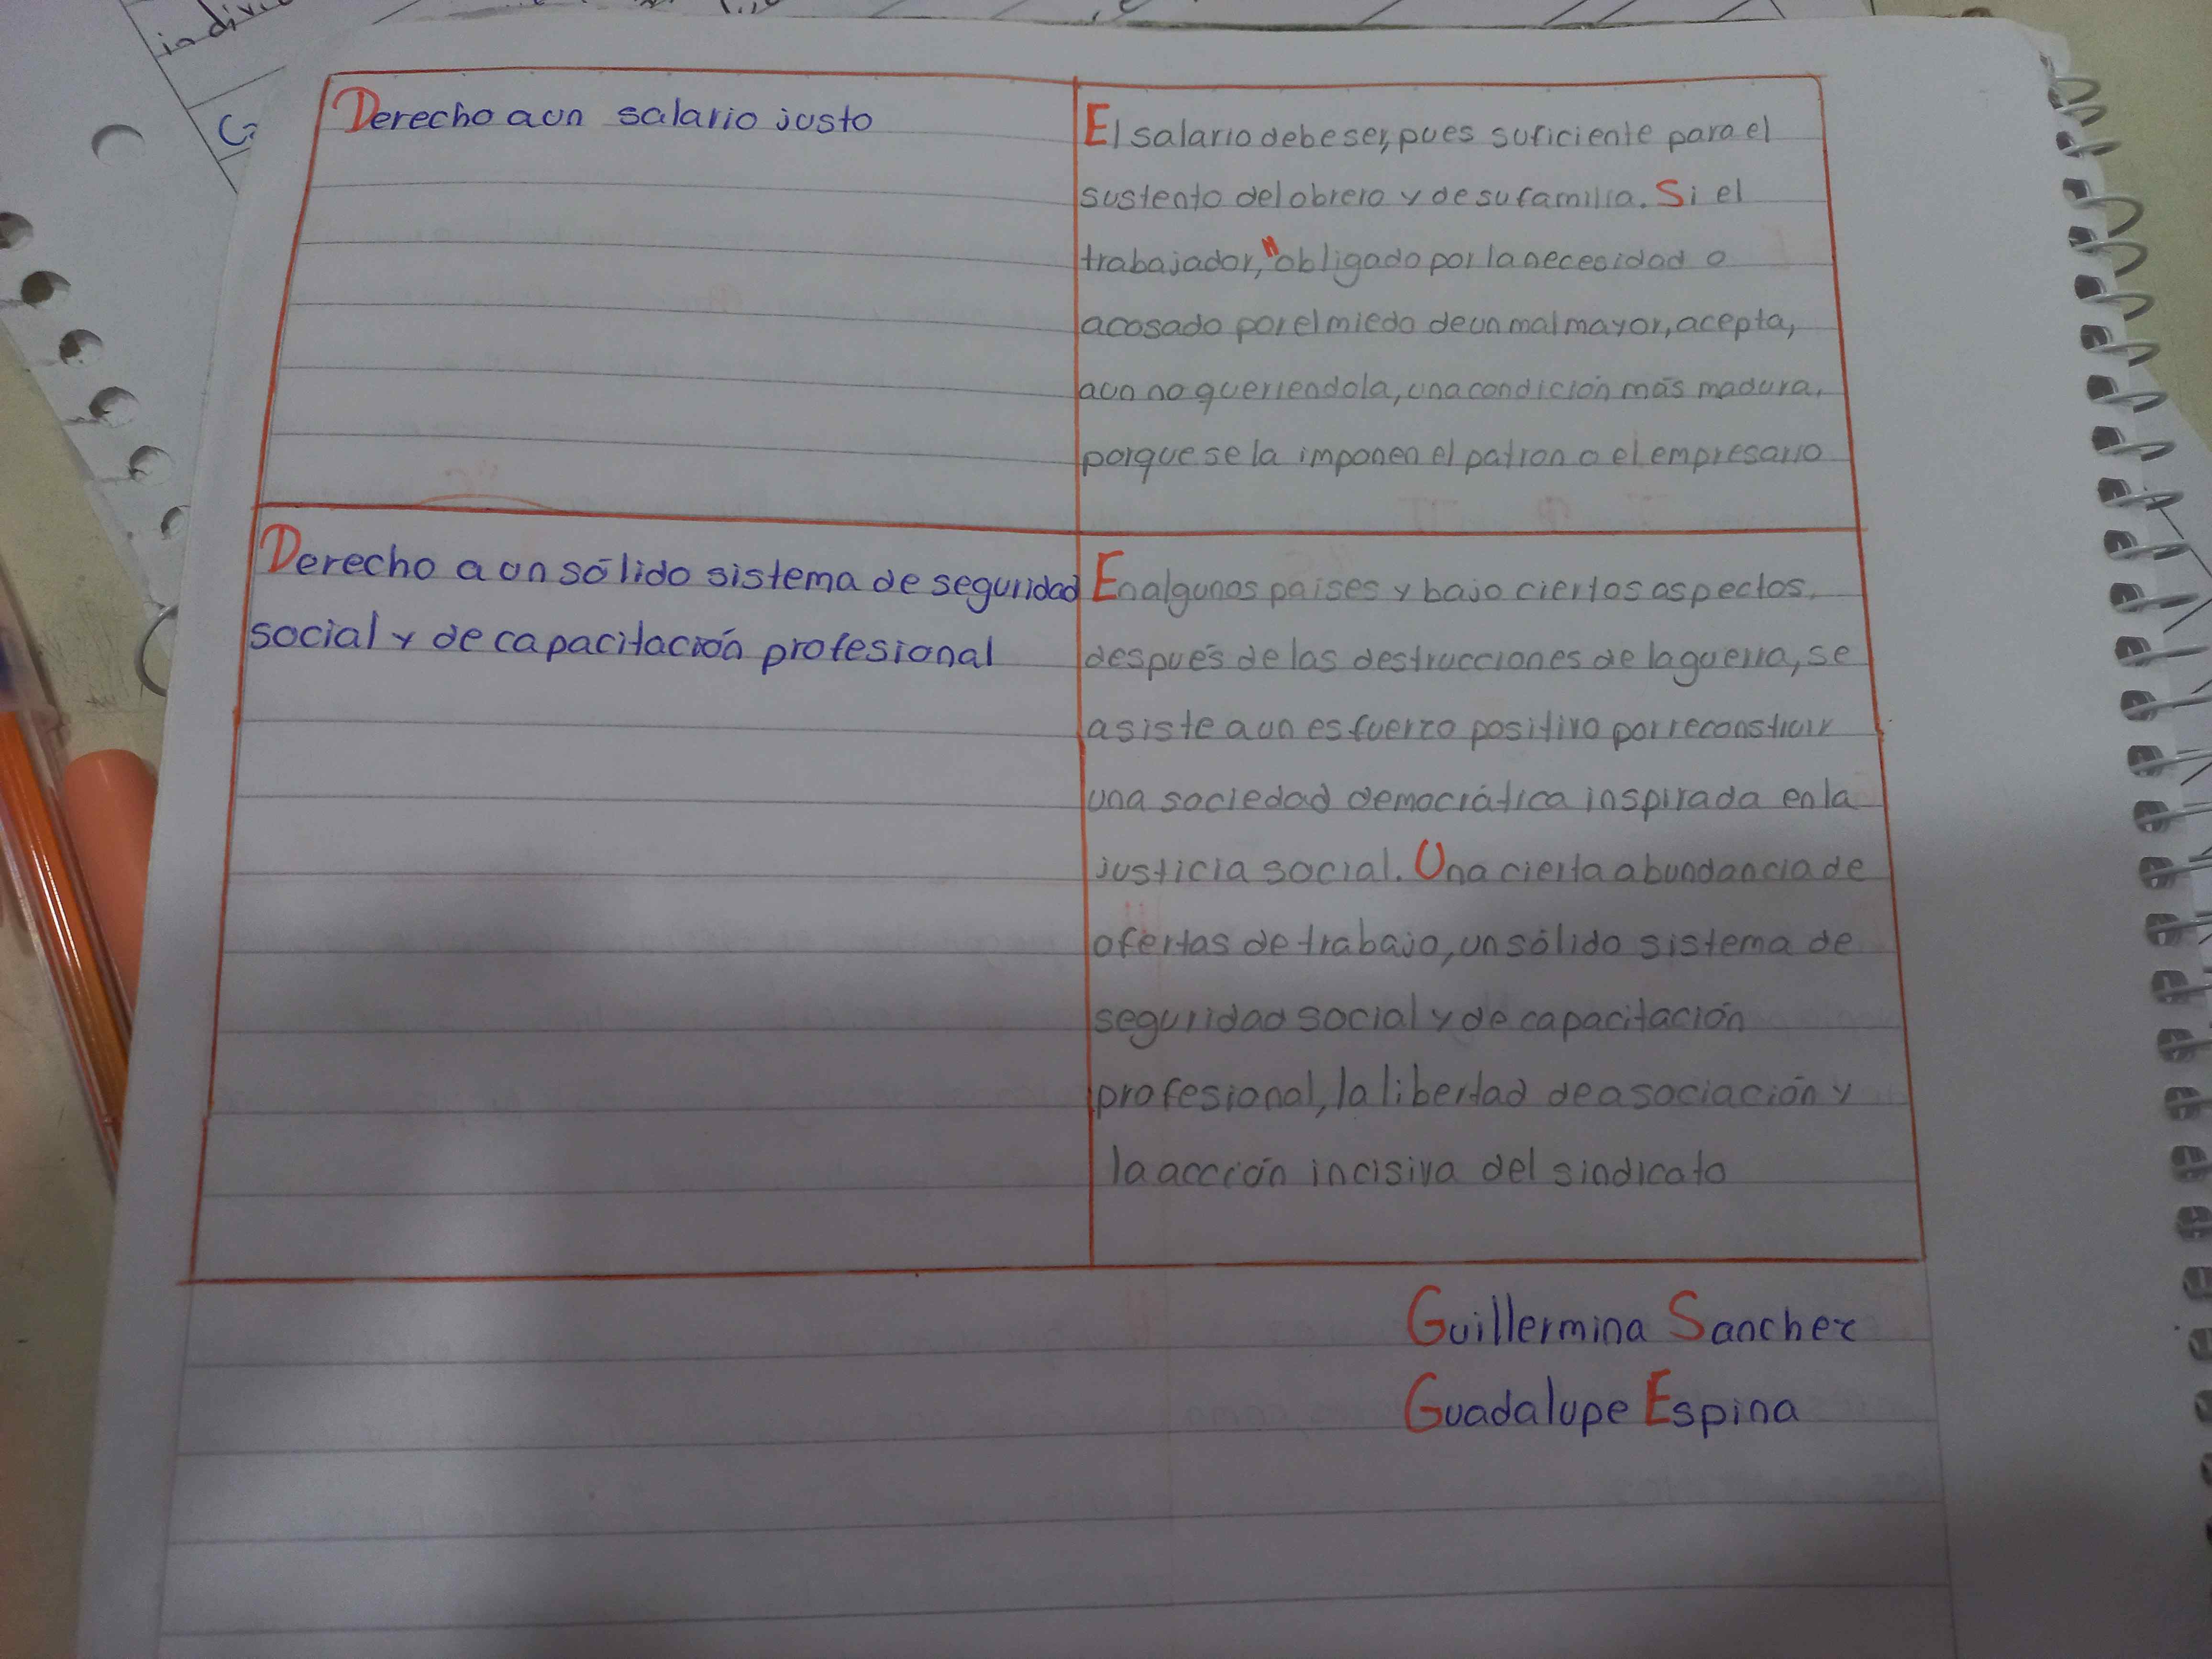 indivi
Ca
Derecho a un salario justo
El salario debe ser, pues suficiente para el
sustento del obrero y de su familia. Si el
trabajador, "obligado por la necesidad o
acosado por el miedo de un mal mayor, acepta,
aun no queriendola, una condición más madura,
porque se la imponen el patron o el empresario
Derecho a un sólido sistema de seguridad
social y de capacitación profesional
En algunos paises y bajo ciertos aspectos,
después de las destrucciones de la guerra, se
asiste a un esfuerzo positivo por reconstruir
una sociedad democrática inspirada en la
justicia social. Una cierta abundancia de
ofertas de trabajo, un sólido sistema de
seguridad social y de capacitación
profesional, la libertad de asociación y
la accción incisiva del sindicato
Guillermina Sanchez
Guadalupe Espina